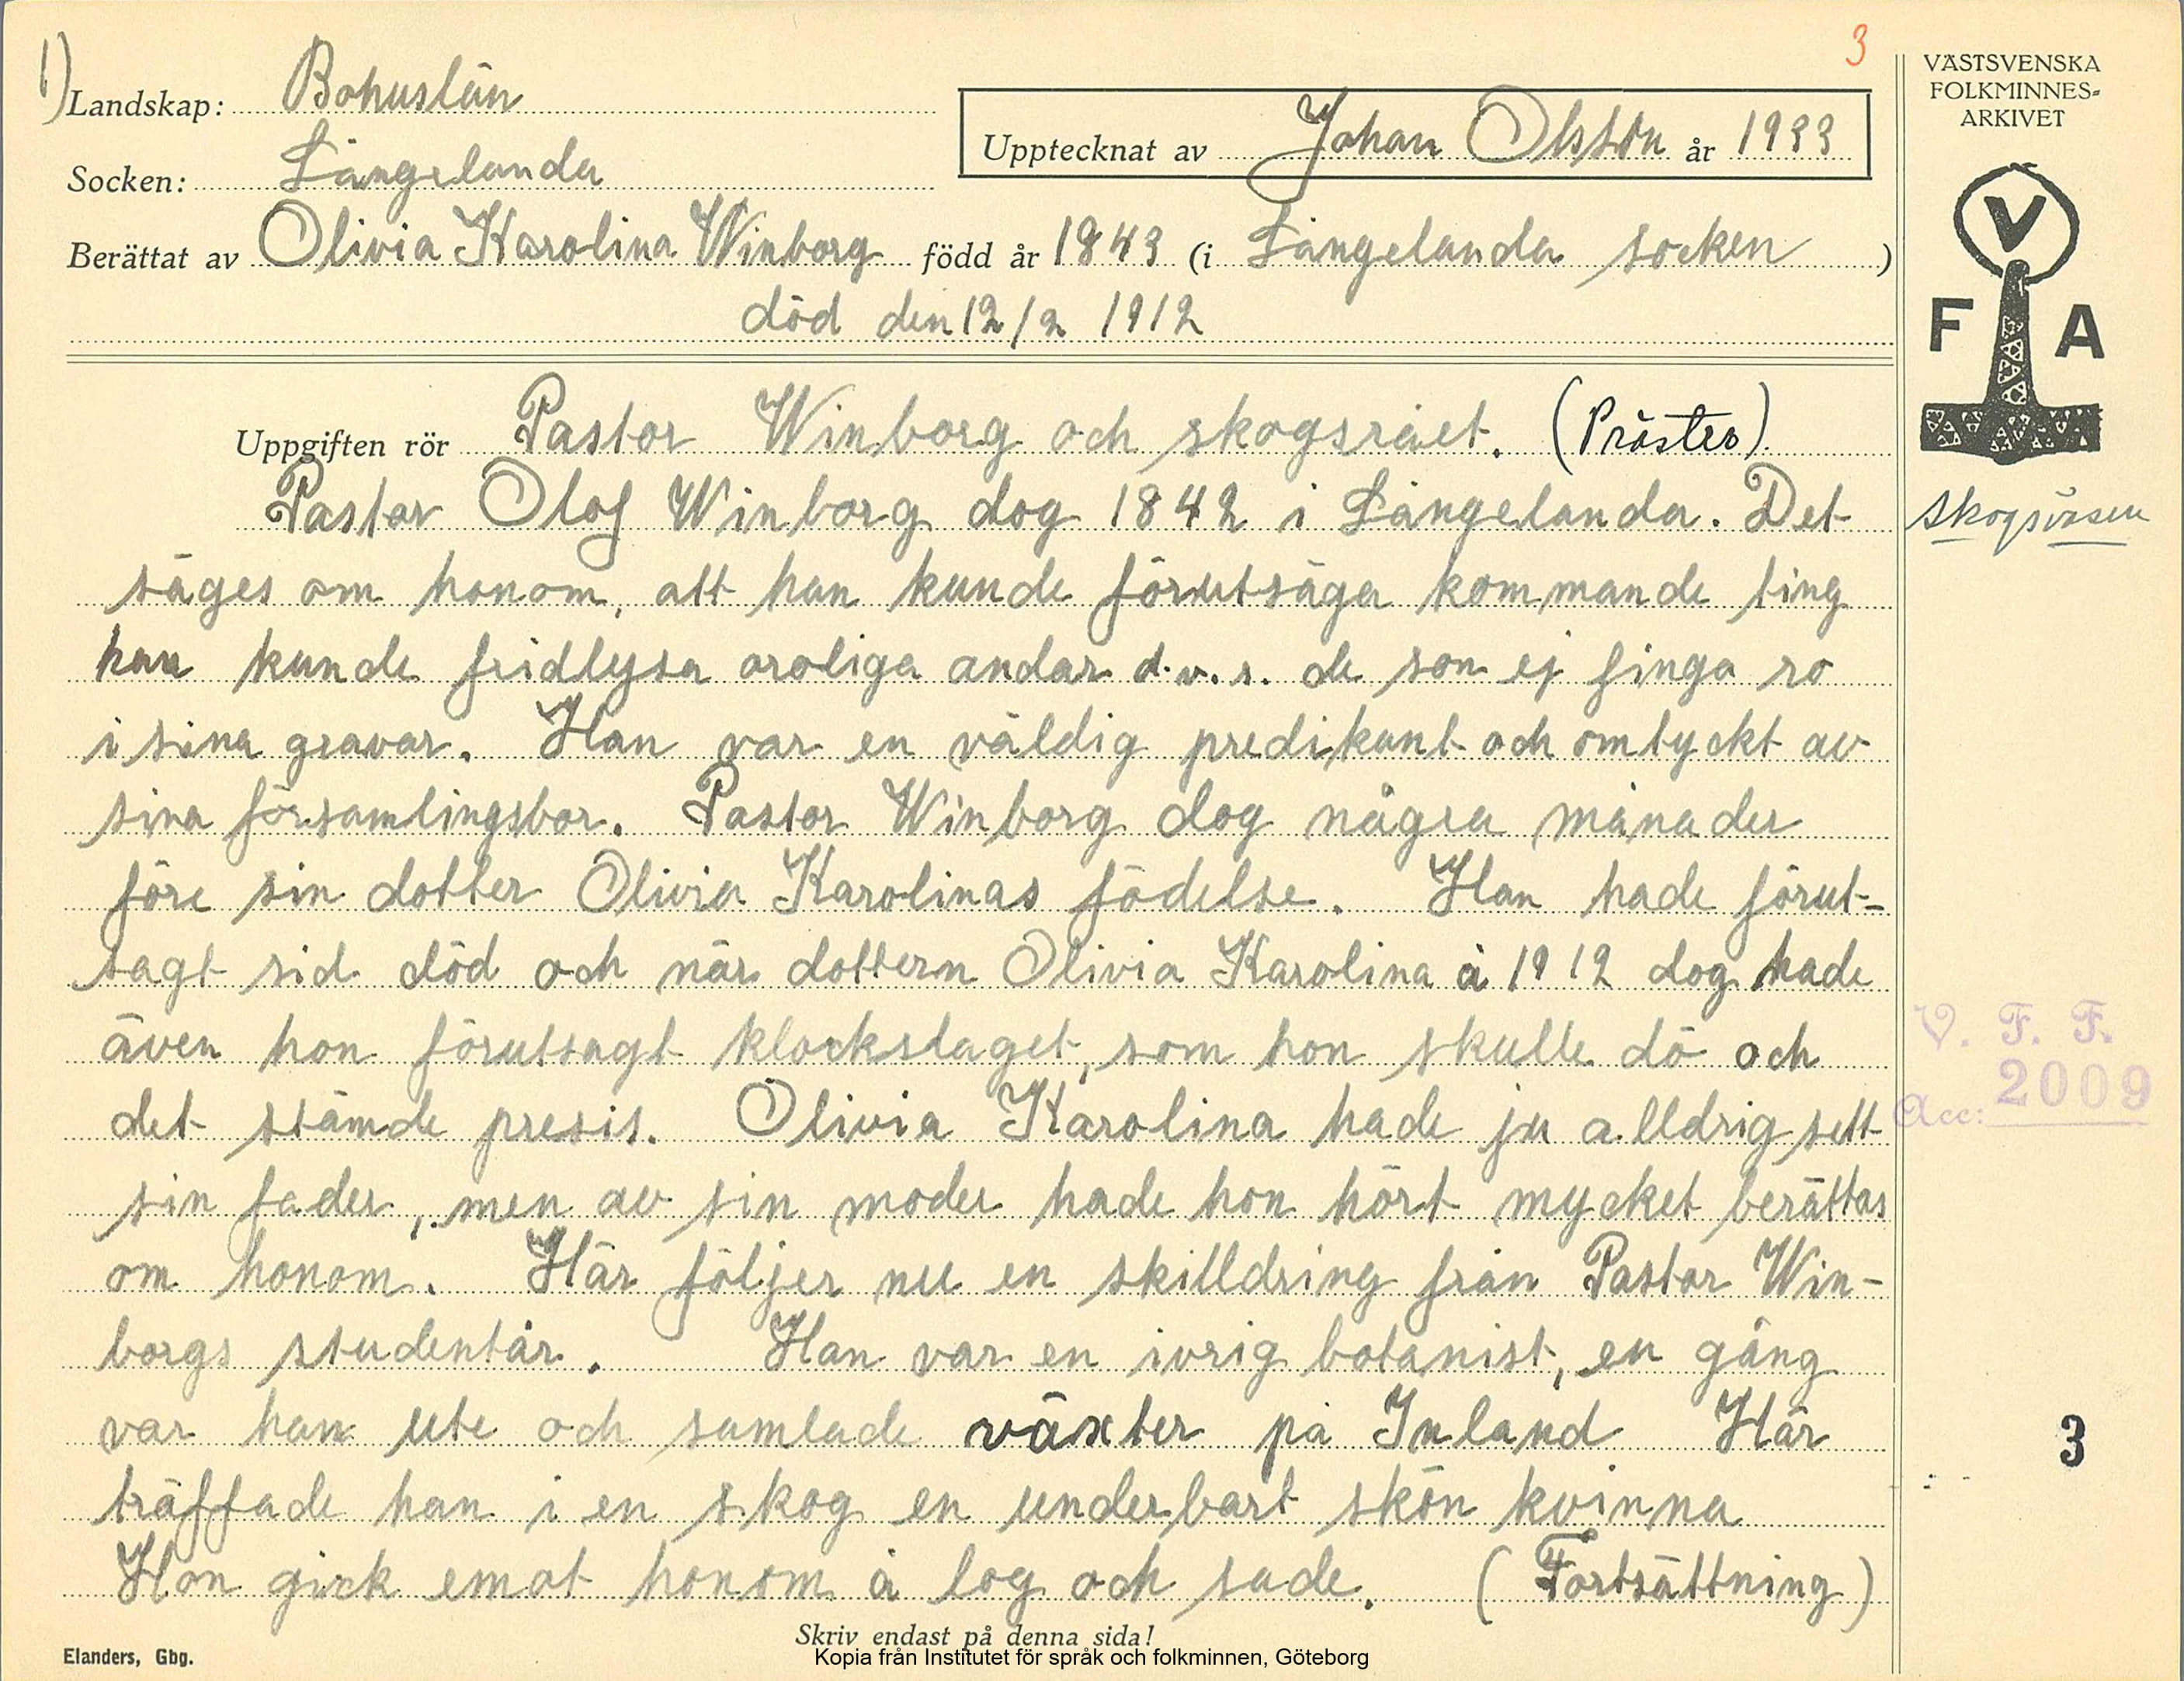 3
1)
Landskap: Bohuslän
Socken: Långelanda
Upptecknat av Johan Olsson år 1933
Berättat av Olivia Karolina Winborg född år 1843 (i Långelanda socken)
död den 12/2 1912
VÄSTSVENSKA
FOLKMINNES-
ARKIVET
V
F A
Uppgiften rör Pastor Winborg och skogsrået. (Präster).
skogsväsen
Pastor Olof Winborg dog 1842 i Långelanda. Det
säges om honom, att han kunde förutsäga kommande ting
han kunde fridlysa oroliga andar d.v.s. de son ej finga ro
i sina gravar. Han var en väldig predikant och omtyckt av
sina församlingsbor. Pastor Winborg dog några månader
före sin dotter Olivia Karolinas födelse. Han hade förut-
sagt sid död och när dottern Olivia Karolina å 1912 dog hade
även hon förutsagt klockslaget, som hon skulle dö och
det stämde presis. Olivia Karolina hade ju alldrig sett
sin fader, men av sin moder hade hon hört mycket berättas
om honom. Här följer nu en skilldring från Pastor Win-
borgs studentår. Han var en ivrig botanist, en gång
var han ute och samlade växter på Inland Här
träffade han i en skog en underbart skön kvinna
Hon gick emot honom å log och sade. (Fortsättning)
V. F. F.
Acc: 2009
3
Skriv endast på denna sida!
Elanders, Gbg.
Kopia från Institutet för språk och folkminnen, Göteborg